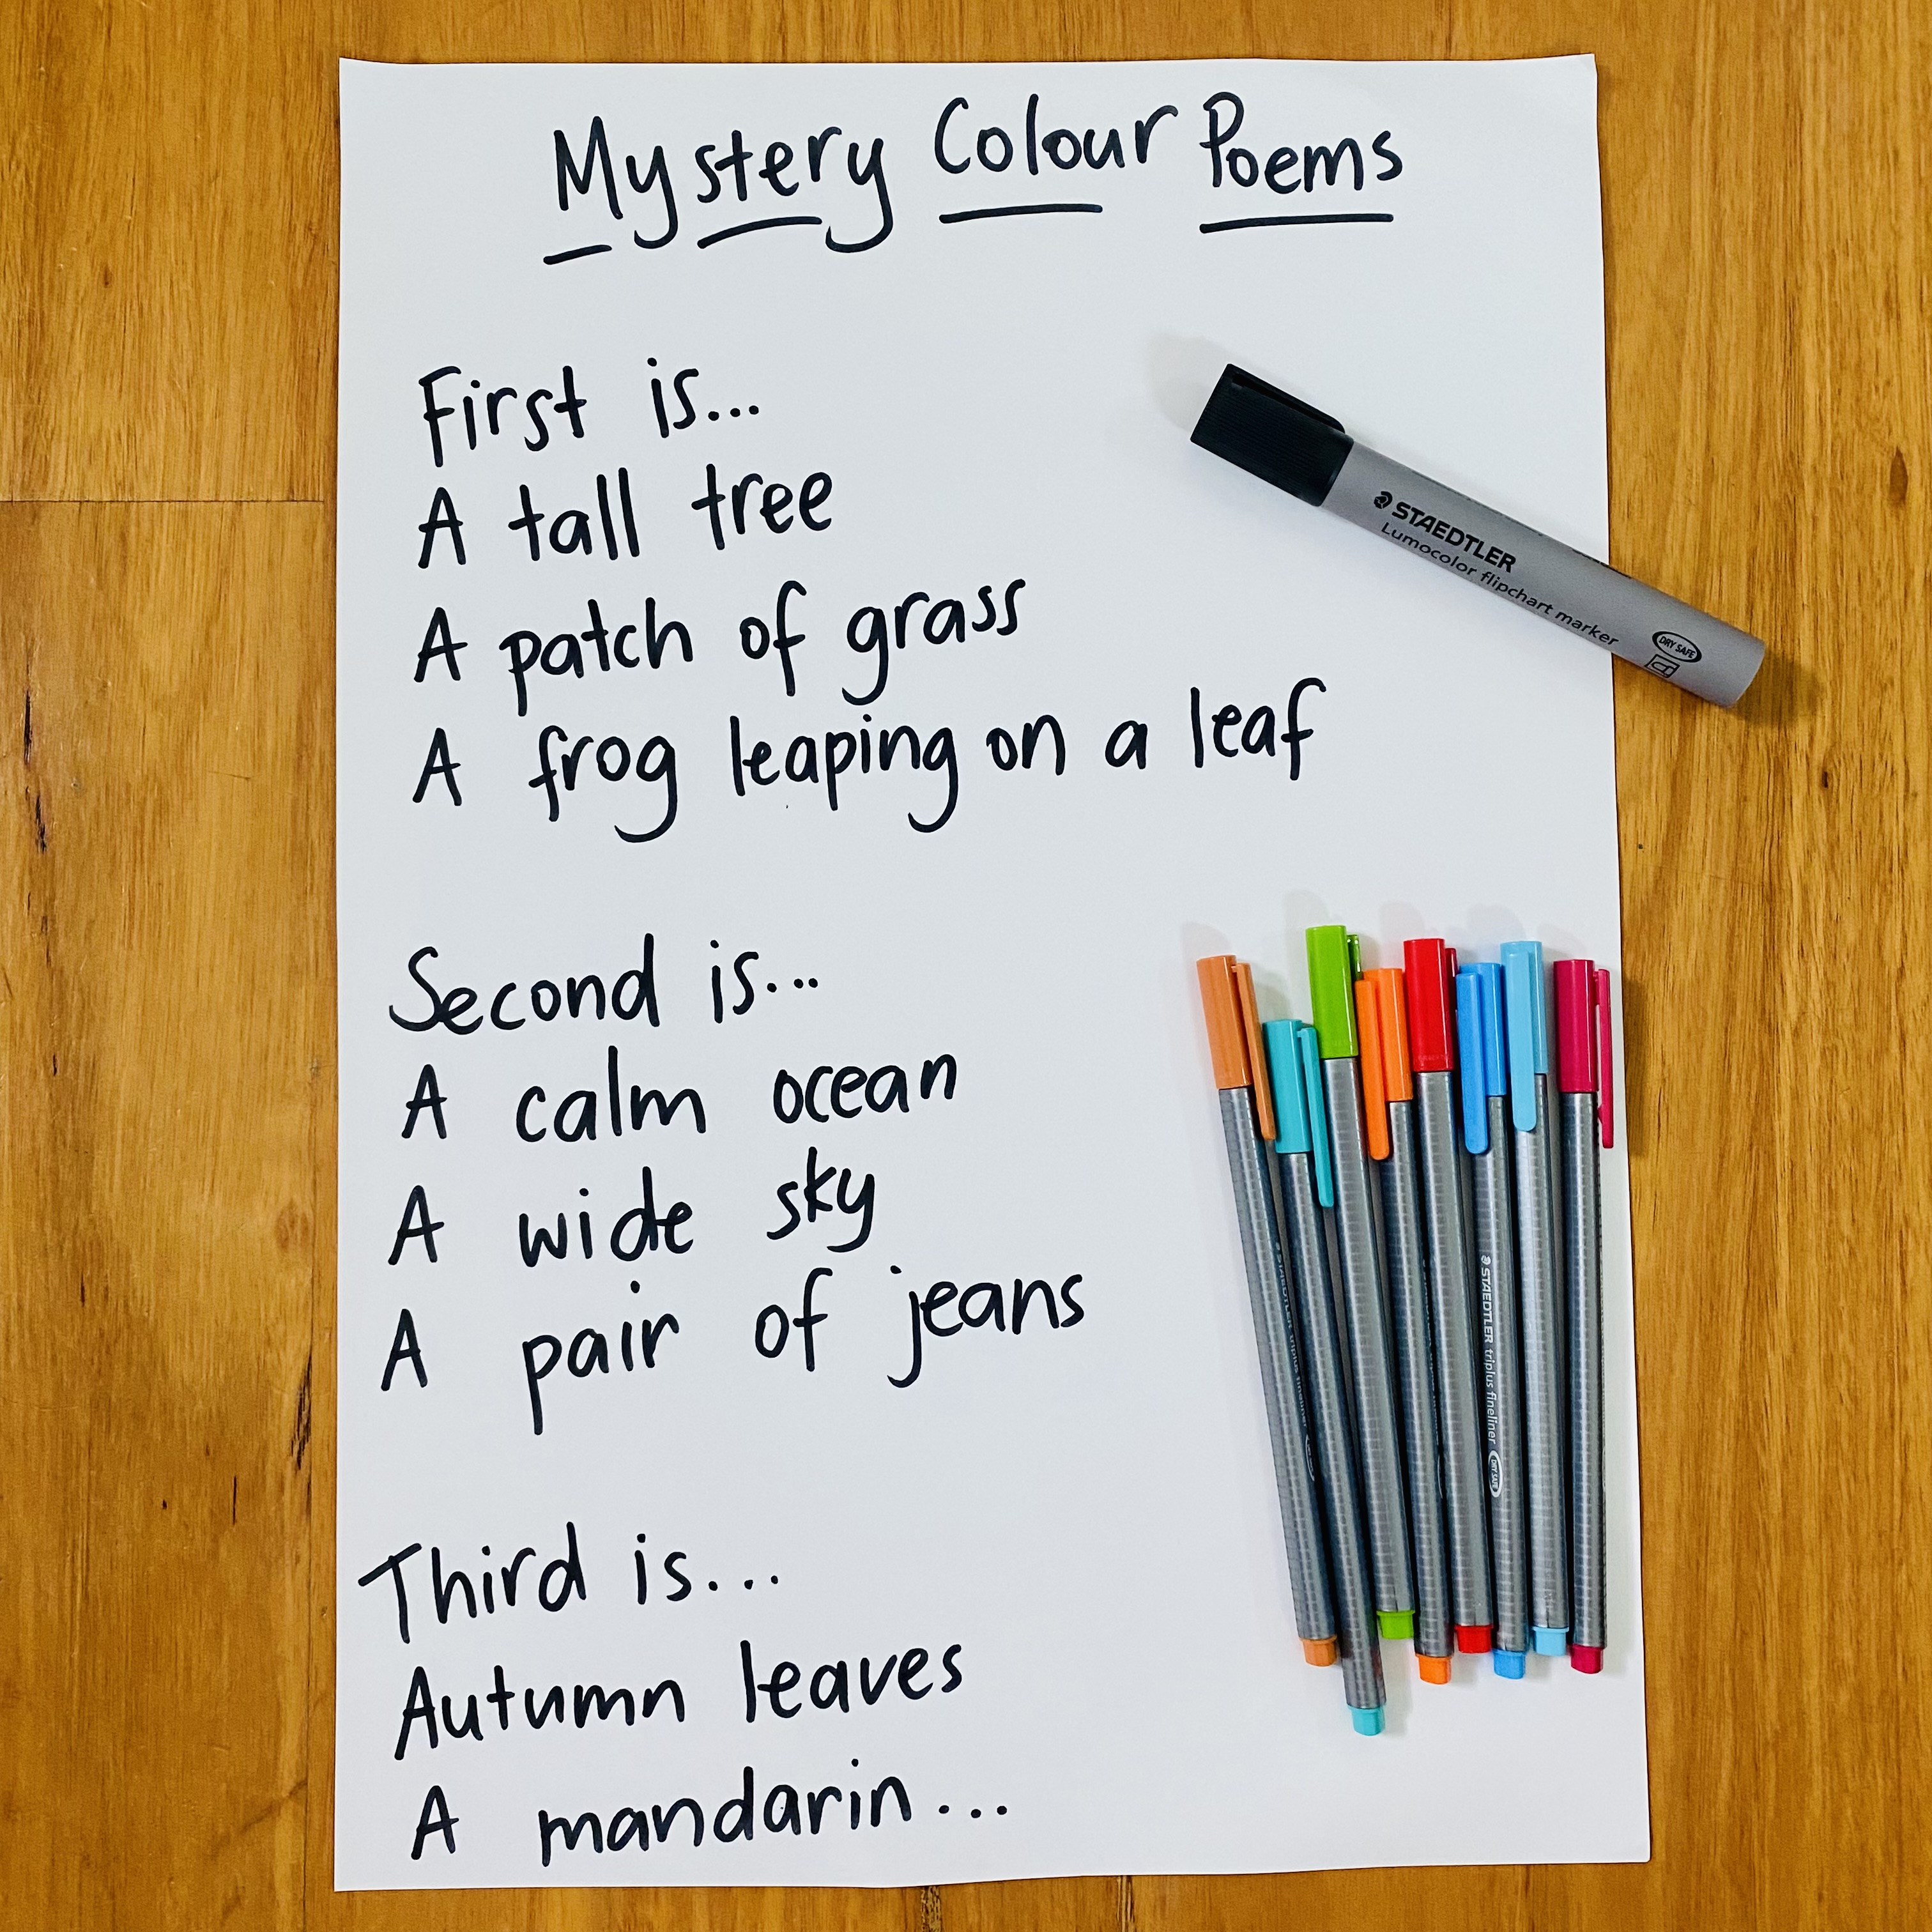 Mystery Colour Poems
First is...
A tall tree
A patch of grass
A frog leaping on a leaf
STAEDTLER
Lumocolor flipchart marker
DRY SAFE
Second is...
A calm ocean
A wide sky
A pair of jeans
STAEDTLER triplus fineliner
DRY SAFE
Third is...
Autumn leaves
A mandarin...